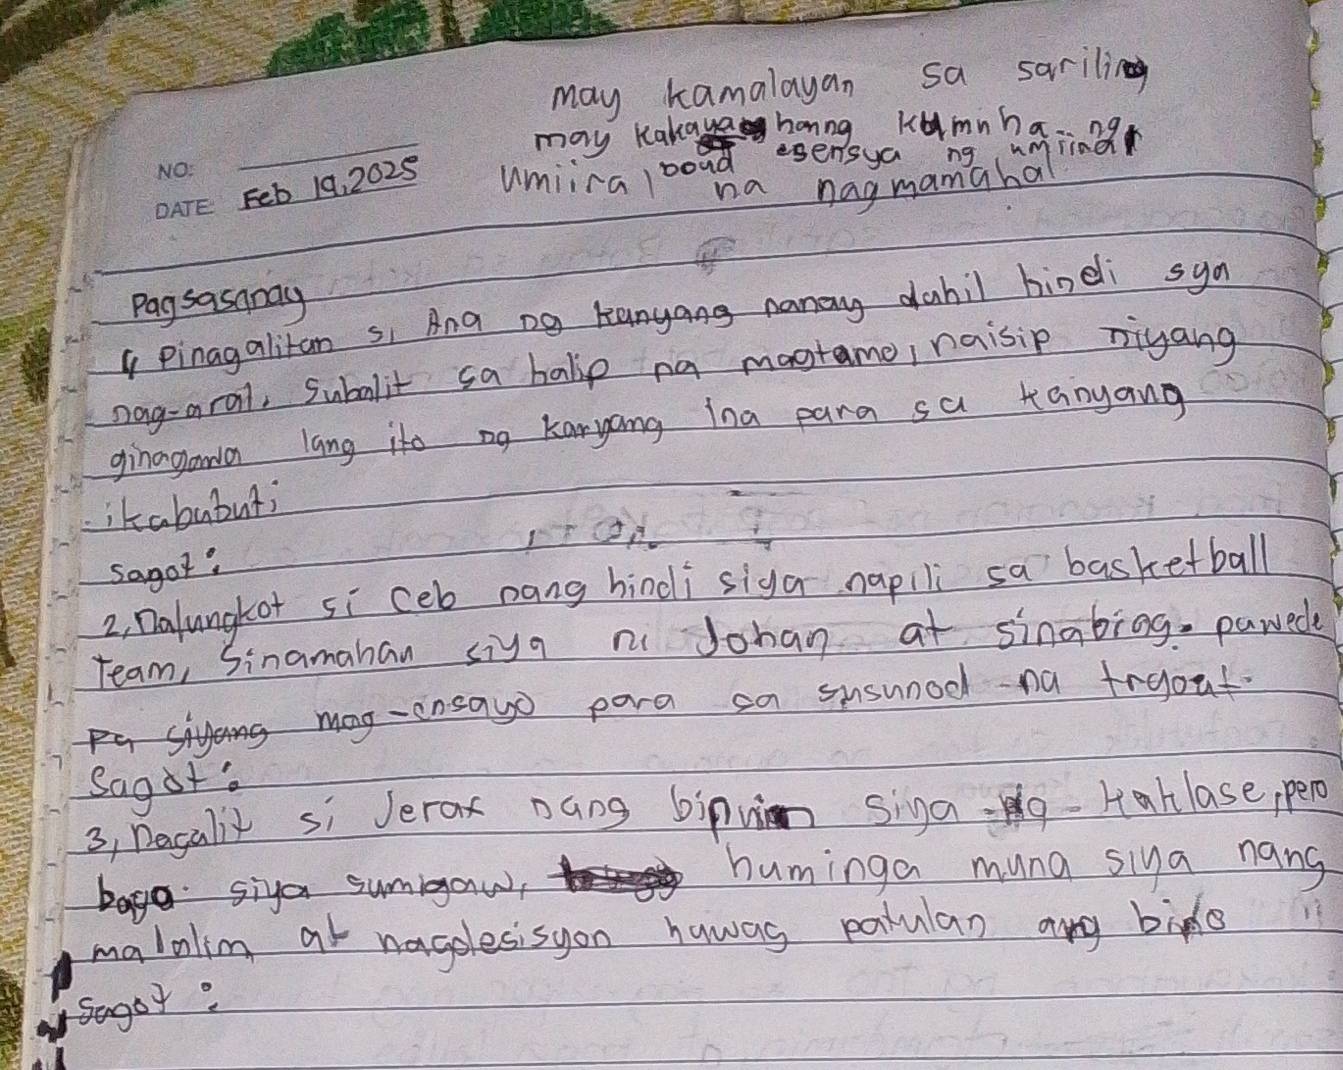 may kamalayan sa sariling
may kakayahanng kumuha ng
umiiral esensya ng umiiral
na nagmamahal
NO:
DATE Feb 19, 2025
Pagsasanay
Pinagalitan si Ana ng kanyang nanay dahil hindi sya
nag-aral. Subalit sa halip na magtamo, naisip niyang
ginagawa lang ito ng kanyang ina para sa kanyang
ikabubuti
Sagot:
2, Nalungkot si Ceb nang hindi siya napili sa basketball
Team, Sinamahan siya ni Johan at sinabing. pawede
Pa siyang mag-ensayo para sa susunod na tryout.
Sagot:
3, Nagalit si Jerax nang siya ng kaklase, pero
bago siya sumigaw, huminga muna siya nang
malalim at nagdesisyon huwag patulan ang
Sagot: